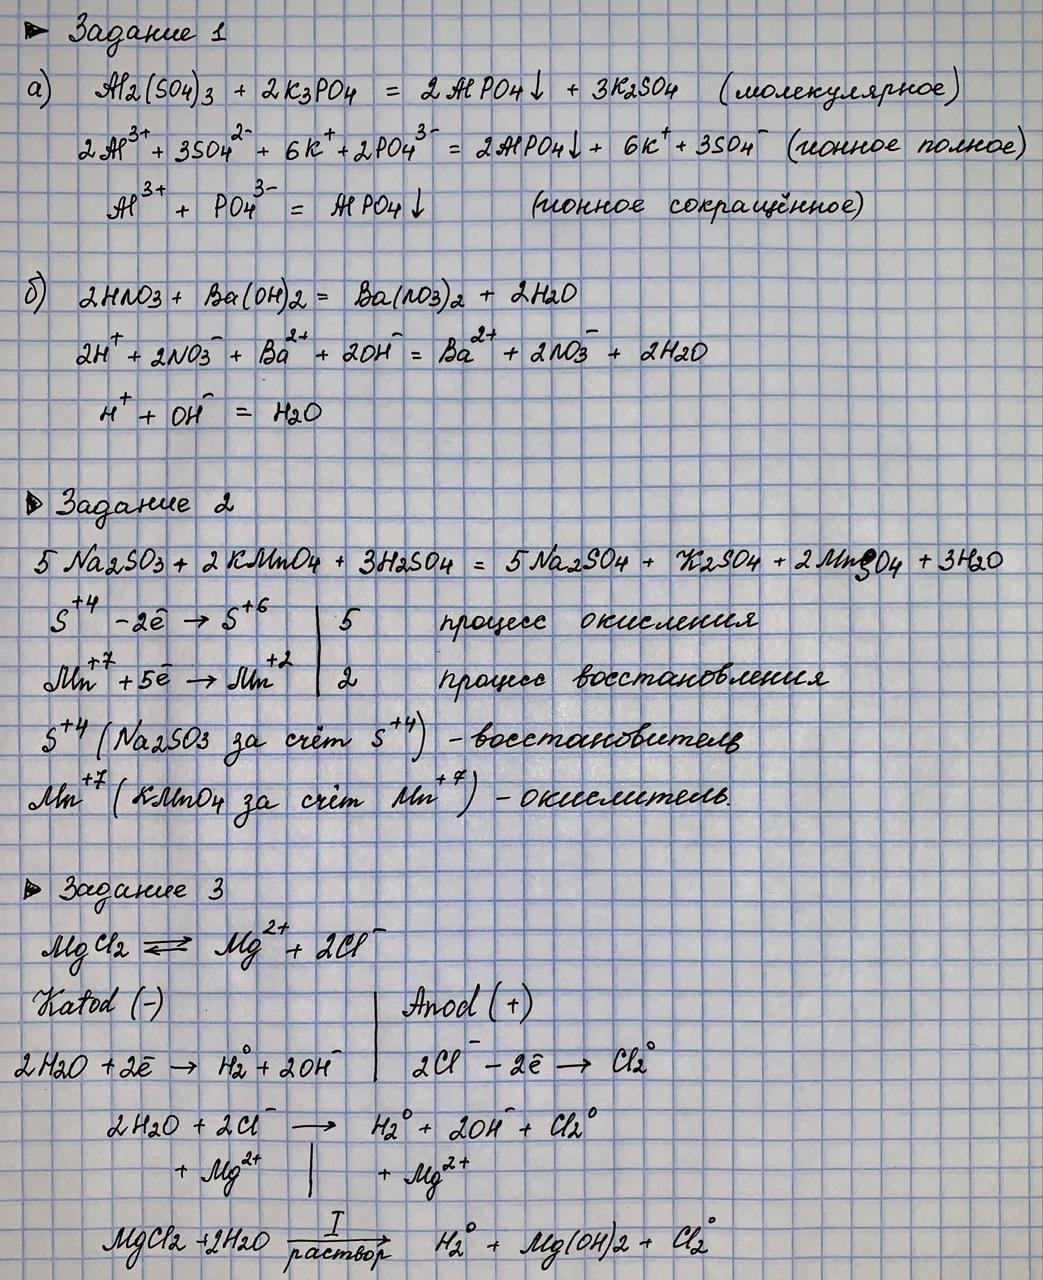 ▶ Задание 1
а) Al₂(SO₄)₃ + 2K₃PO₄ = 2AlPO₄↓ + 3K₂SO₄ (молекулярное)
2Al³⁺ + 3SO₄²⁻ + 6K⁺ + 2PO₄³⁻ = 2AlPO₄↓ + 6K⁺ + 3SO₄⁻ (ионное полное)
Al³⁺ + PO₄³⁻ = AlPO₄↓ (ионное сокращённое)
б) 2HNO₃ + Ba(OH)₂ = Ba(NO₃)₂ + 2H₂O
2H⁺ + 2NO₃⁻ + Ba²⁺ + 2OH⁻ = Ba²⁺ + 2NO₃⁻ + 2H₂O
H⁺ + OH⁻ = H₂O
▶ Задание 2
5Na₂SO₃ + 2KMnO₄ + 3H₂SO₄ = 5Na₂SO₄ + K₂SO₄ + 2MnSO₄ + 3H₂O
S⁺⁴ - 2ē → S⁺⁶ | 5 процесс окисления
Mn⁺⁷ + 5ē → Mn⁺² | 2 процесс восстановления
S⁺⁴ (Na₂SO₃ за счёт S⁺⁴) - восстановитель
Mn⁺⁷ (KMnO₄ за счёт Mn⁺⁷) - окислитель.
▶ Задание 3
MgCl₂ ⇌ Mg²⁺ + 2Cl⁻
Katod (-) | Anod (+)
2H₂O + 2ē → H₂⁰ + 2OH⁻ | 2Cl⁻ - 2ē → Cl₂⁰
2H₂O + 2Cl⁻ → H₂⁰ + 2OH⁻ + Cl₂⁰
+ Mg²⁺ | + Mg²⁺
MgCl₂ + 2H₂O I раствор → H₂⁰ + Mg(OH)₂ + Cl₂⁰